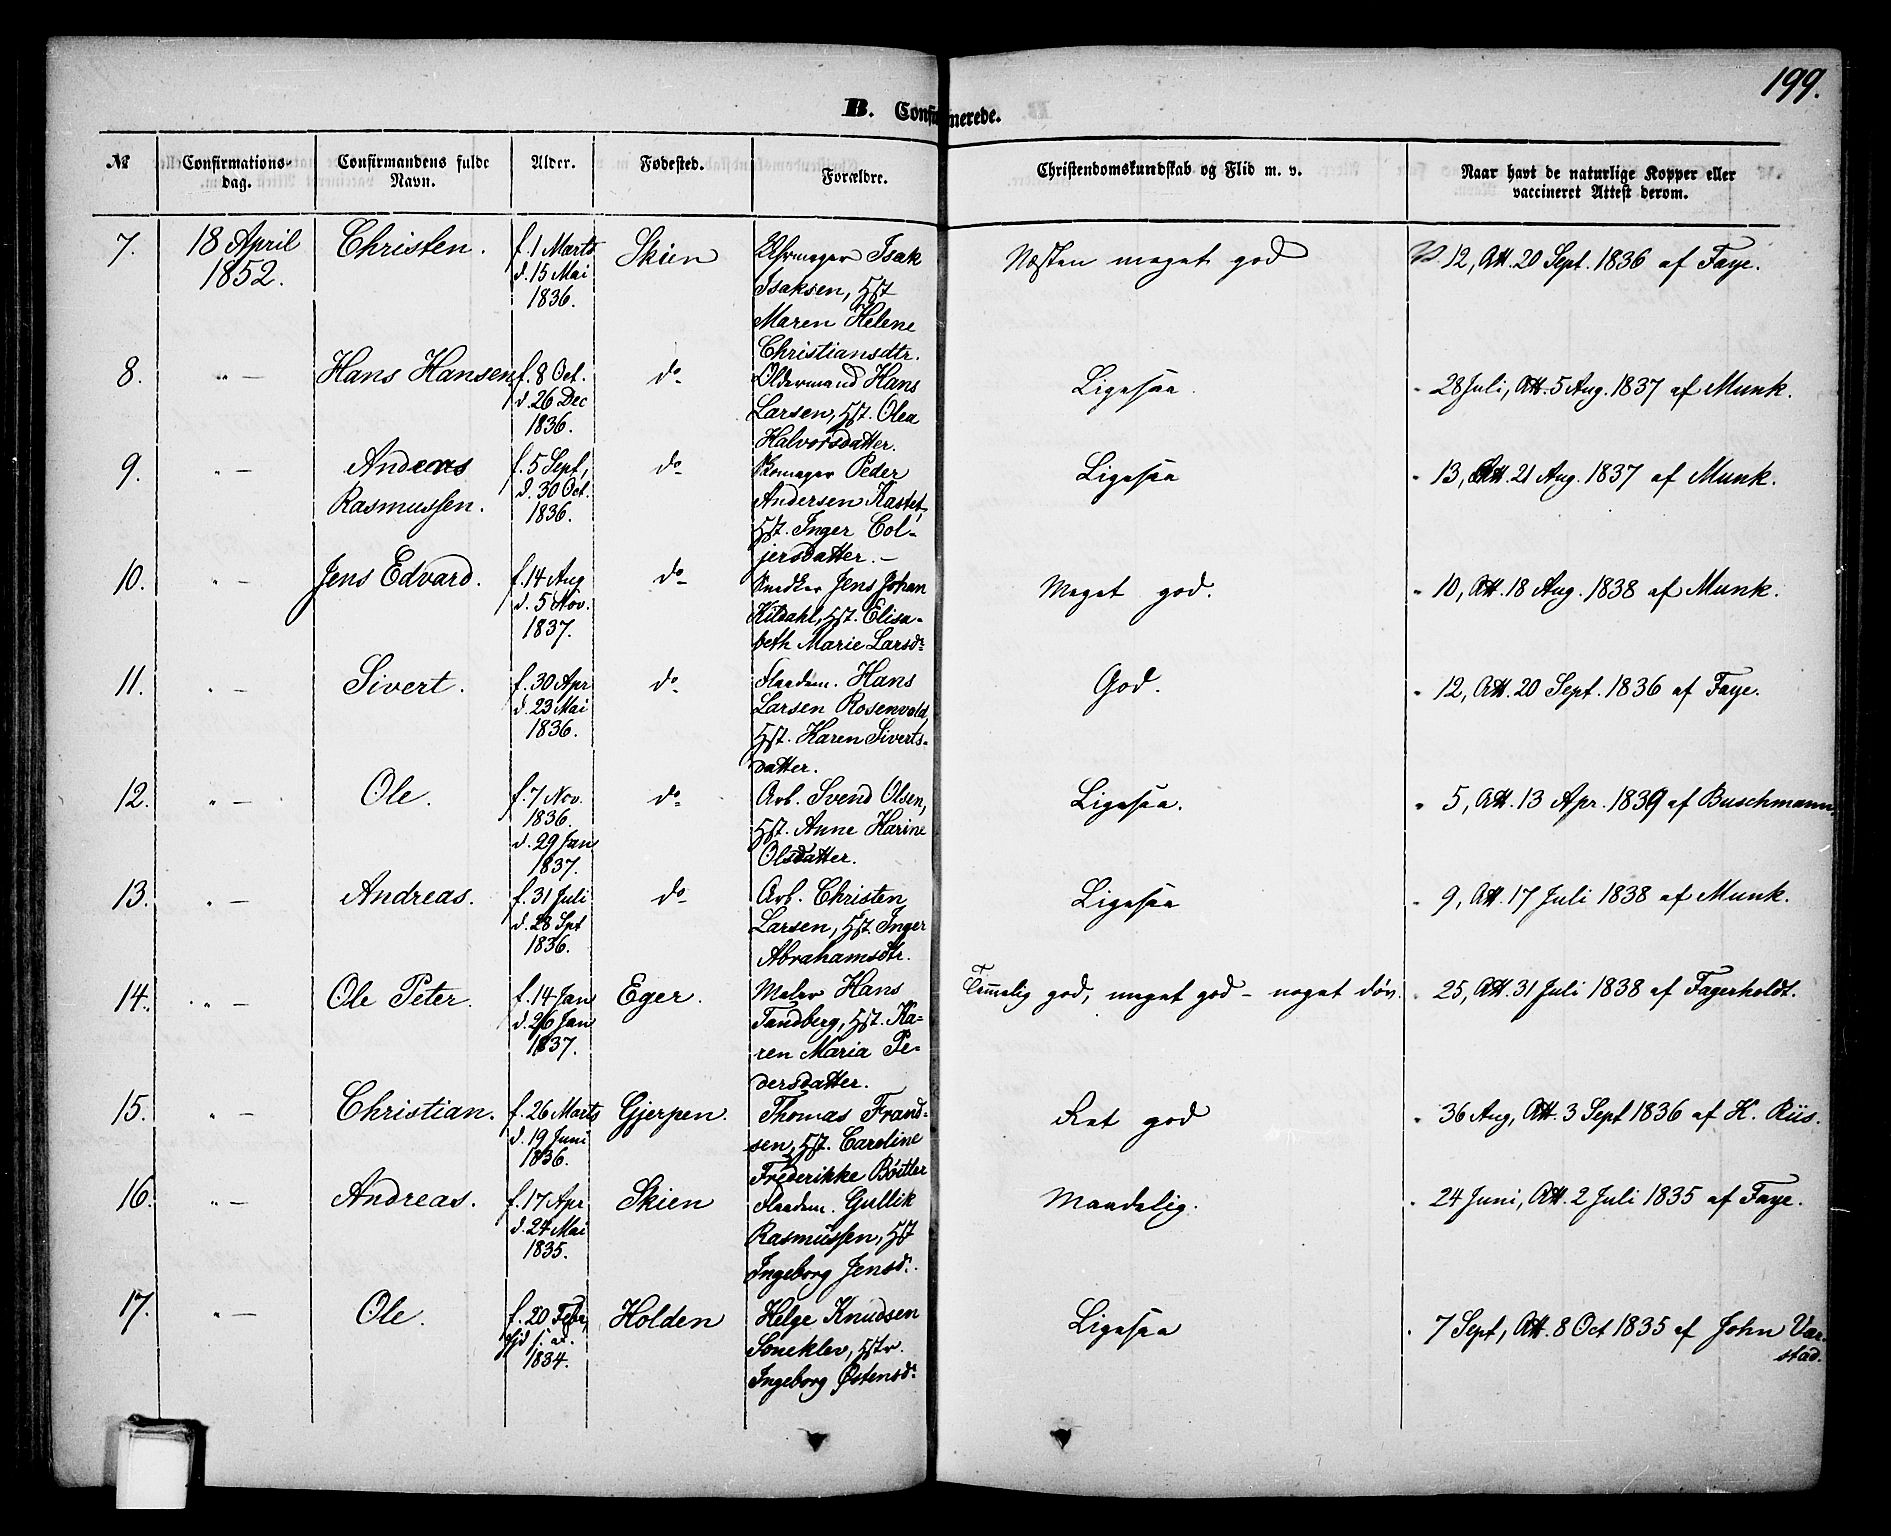 199.
B. Confirmerede.
№ Confirmationsdag. Confirmandens fulde Navn. Alder. Fødested. Forældre. Christendomskundskab og Flid m. v. Naar havt de naturlige Kopper eller vaccineret Attest derom.
7. 18 April Christen. f. 1 Marts Skien Isak Næsten meget god V. 12, Att. 20 Sept. 1836 af Faye.
1852. d. 15 Mai Isaksen, Hst
1836. Maren Helene
Christiansdtr.
8. " — Hans Hansen f. 8 Oct. do Oldermand Hans Ligesaa. " 28 Juli, Att. 5 Aug. 1837 af Munk.
d. 26 Dec Larsen, Hst. Olea
1836. Halvorsdatter.
9. " — Anders f. 5 Sept, do Skomager Peder Ligesaa " 13, Att. 21 Aug. 1837 af Munk.
Rasmussen. d. 30 Oct. Andersen Kastet,
1836. Hst. Inger Col-
jersdatter. —
10. " — Jens Edvard. f. 14 Aug do Snedker Jens Johan Meget god. " 10, Att. 18 Aug. 1838 af Munk.
d. 5 Nov. Kildahl, Hst. Elisa-
1837. beth Marie Larsdr
11. " — Sivert. f. 30 Apr do Flaadm. Hans God. " 12, Att. 20 Sept. 1836 af Faye.
d. 23 Mai Larsen Rosenvold,
1836. Hst. Karen Siverts-
datter.
12. " — Ole. f. 7 Nov. do Arb. Svend Olsen, Ligesaa. " 5, Att. 13 Apr. 1839 af Buschmann.
1836. Hst. Anne Karine
d. 29 Jan Olsdatter.
1837.
13. " — Andreas. f. 31 Juli do Arb. Christen Ligesaa " 9, Att. 17 Juli 1838 af Munk.
d. 28 Spt Larsen, Hst. Inger
1836. Abrahamsdtr.
14. " — Ole Peter. f. 14 Jan Eger. Maler Hans Temmelig god, meget god – noget døv. " 25, Att. 31 Juli 1838 af Fagerholdt.
d. 26 Jan Tandberg, Hst. Ka-
1837. ren Maria Pe-
dersdatter.
15. " — Christian. f. 26 Marts Gjerpen. Thomas Frand- Ret god " 36 Aug, Att. 3 Sept 1836 af K. Riis.
d. 19 Juni sen, Hst. Caroline
1836. Frederikke Bøttler
16. " — Andreas. f. 17 Apr Skien Flaadm. Gullik Maadelig. " 24 Juni, Att. 2 Juli 1835 af Faye.
d. 24 Mai Rasmussen, Hst
1835. Ingeborg Jensdr.
17. " — Ole. f. 20 Febr, Holden Helge Knudsen Ligesaa " 7 Sept, Att. 8 Oct 1835 af John Var-
hjd s. a. Soneklev, Hstr. stad.
1834. Ingeborg Østensdr